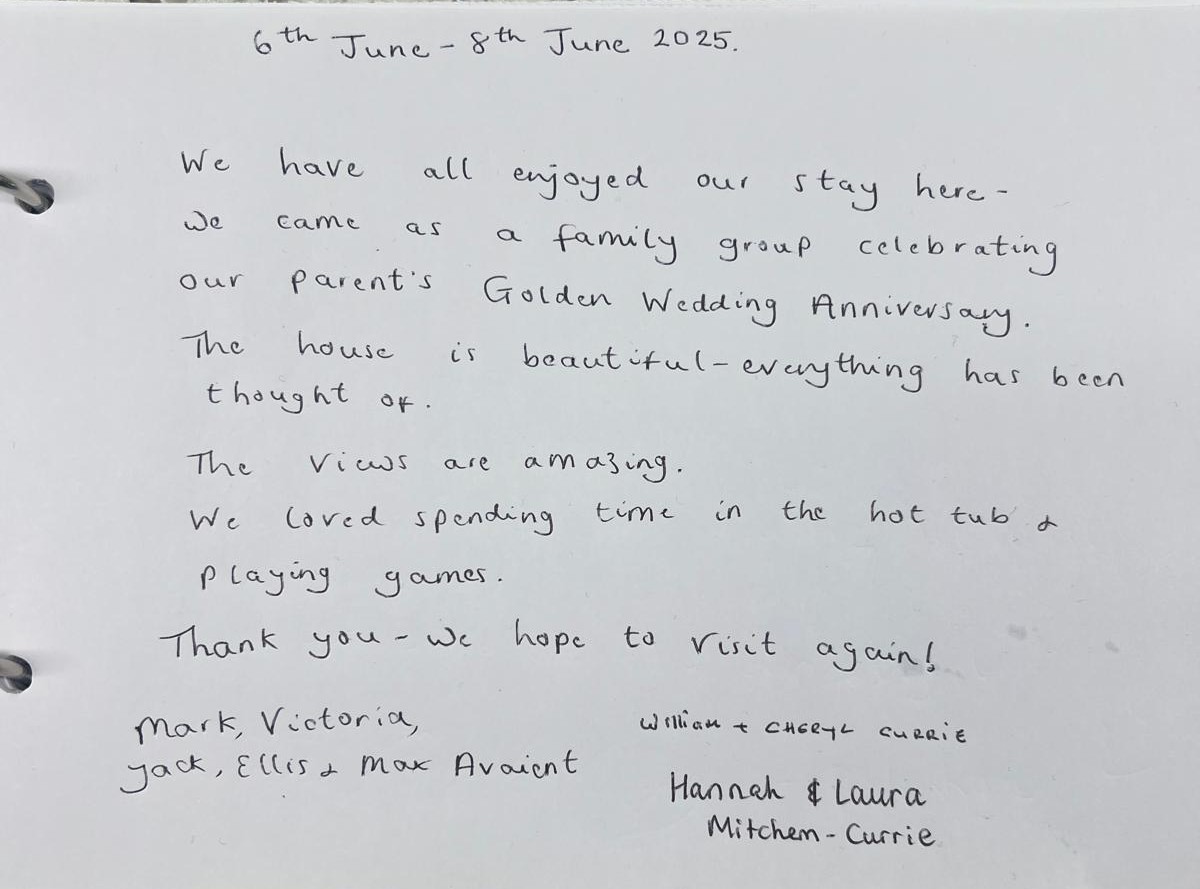 6th June - 8th June 2025.
We have all enjoyed our stay here -
We came as a family group celebrating
our parent's Golden Wedding Anniversary.
The house is beautiful - everything has been
thought of.
The views are amazing.
We loved spending time in the hot tub &
playing games.
Thank you - we hope to visit again!
Mark, Victoria,
Jack, Ellis & Max Avaient
William + CHERYL CURRIE
Hannah & Laura
Mitchem - Currie